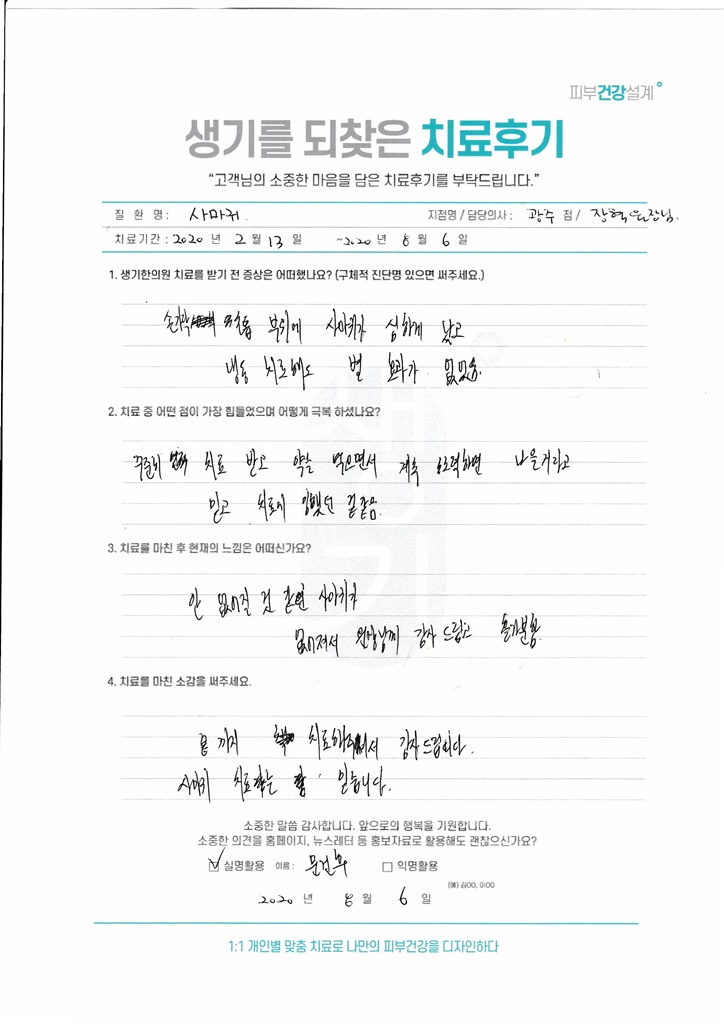 피부건강설계
생기를 되찾은 치료후기
"고객님의 소중한 마음을 담은 치료후기를 부탁드립니다."
질 환 명 : 사마귀. 지점명 / 담당의사 : 광주 점 / 장혁 원장님.
치료기간 : 2020 년 2 월 13 일 ~2020 년 8 월 6 일
1. 생기한의원 치료를 받기 전 증상은 어떠했나요? (구체적 진단명 있으면 써주세요.)
손가락 부위에 사마귀가 심하게 났고
냉동 치료해도 별 효과가 없었음.
2. 치료 중 어떤 점이 가장 힘들었으며 어떻게 극복 하셨나요?
꾸준히 치료 받고 약을 먹으면서 계속 노력하면 나을거라고
믿고 치료에 임했던 것 같음.
3. 치료를 마친 후 현재의 느낌은 어떠신가요?
안 없어질 것 같던 사마귀가
없어져서 원장님께 감사 드립고 홀가분함.
4. 치료를 마친 소감을 써주세요.
끝 까지 치료해주셔서 감사드립니다.
사마귀 치료 믿습니다.
소중한 말씀 감사합니다. 앞으로의 행복을 기원합니다.
소중한 의견을 홈페이지, 뉴스레터 등 홍보자료로 활용해도 괜찮으신가요?
실명활용 이름 : 문건후 익명활용
(예) 김OO, 이OO
2020 년 8 월 6 일
1:1 개인별 맞춤 치료로 나만의 피부건강을 디자인하다